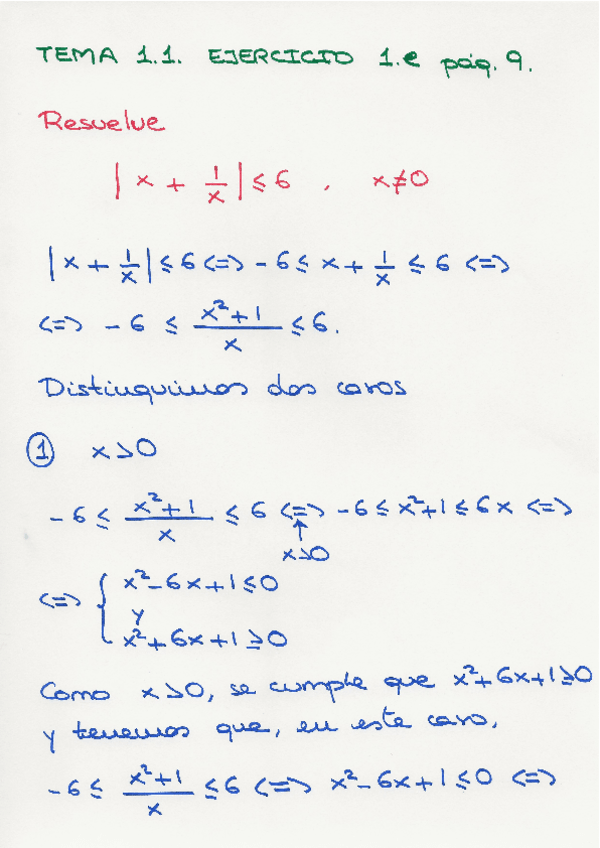 TEMA 1.1. EJERCICIO 1.e pág. 9.
Resuelve
| x + 1/x | ≤ 6 , x ≠ 0
| x + 1/x | ≤ 6 <=> - 6 ≤ x + 1/x ≤ 6 <=>
<=> - 6 ≤ (x² + 1)/x ≤ 6.
Distinguimos dos casos
① x > 0
- 6 ≤ (x² + 1)/x ≤ 6 <=> - 6 ≤ x² + 1 ≤ 6x <=>
↑
x > 0
<=> { x² - 6x + 1 ≤ 0
y
x² + 6x + 1 ≥ 0
Como x > 0, se cumple que x² + 6x + 1 ≥ 0
y tenemos que, en este caso,
- 6 ≤ (x² + 1)/x ≤ 6 <=> x² - 6x + 1 ≤ 0 <=>